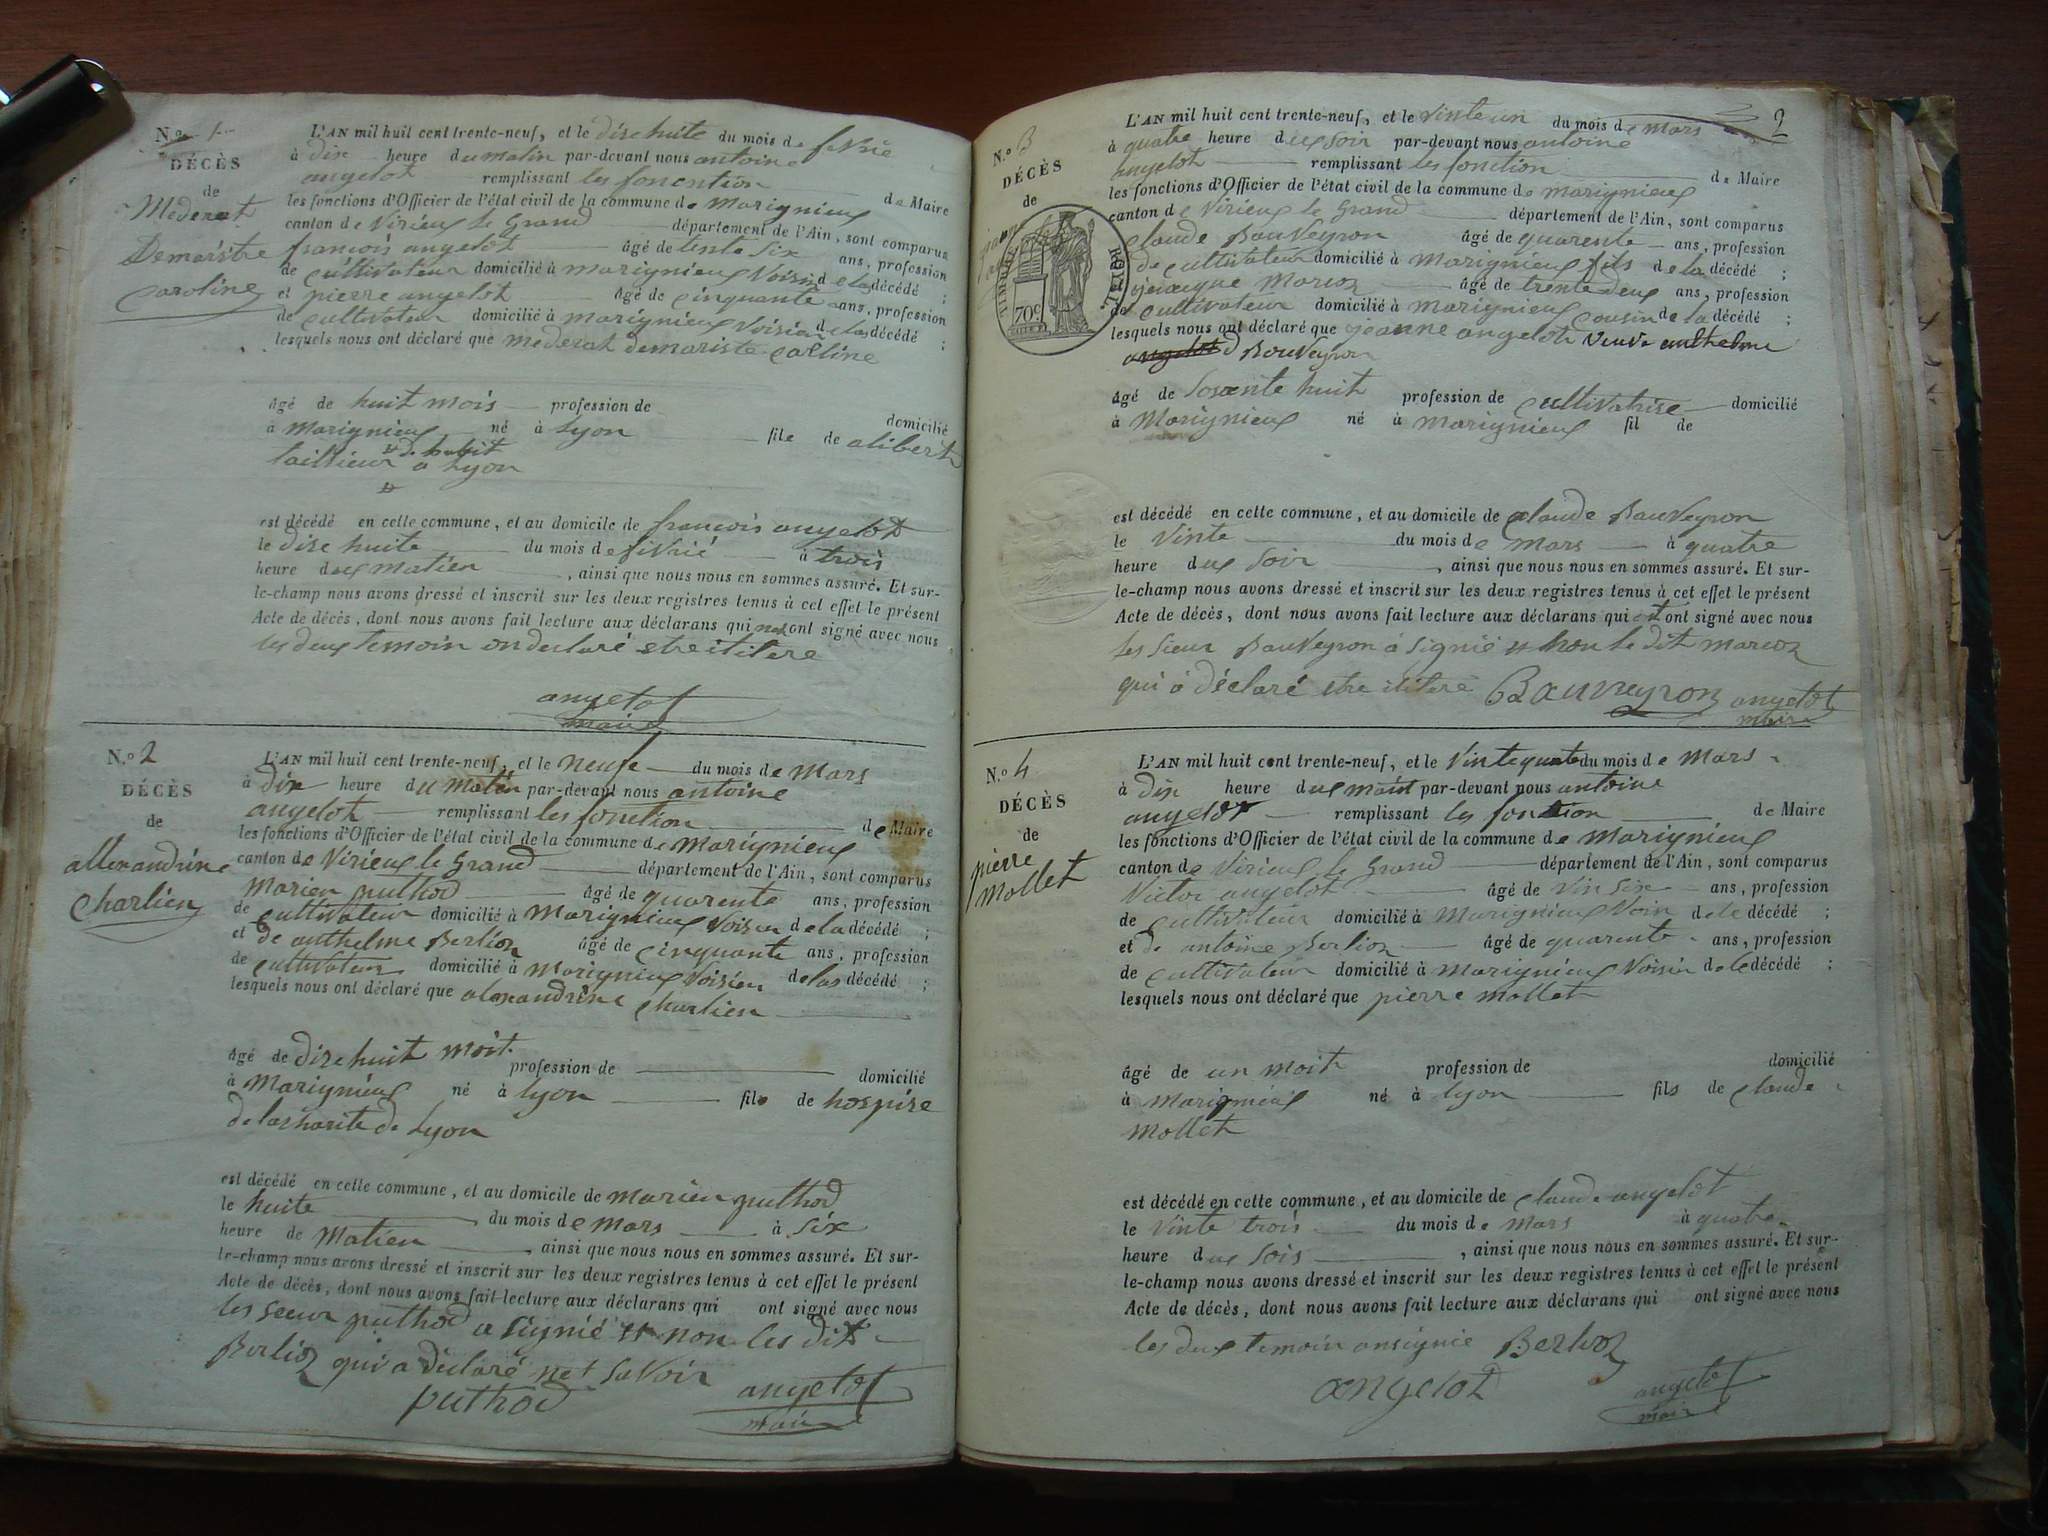 N.o 1
DÉCÈS
de
Mederat
Demariste
Caroline
L'AN mil huit cent trente-neuf, et le dixe huite du mois de fevrié
à dix heure du matin par-devant nous antoine
angelot remplissant les fonention de Maire
les fonctions d'Officier de l'état civil de la commune de marignieux
canton de Virieux le Grand département de l'Ain, sont comparus
françois angelot âgé de tente six ans, profession
de Cultivateur domicilié à marignieux Voisin de la décédé ;
et pierre angelot âgé de Cinquante ans, profession
de Cultivateur domicilié à marignieux Voisien de la décédé ;
lesquels nous ont déclaré que mederat demariste Carline
âgé de huit mois profession de domicilié
à Marignieux né à Lyon file de alibert
taillieur d'habit a Lyon
est décédé en cette commune, et au domicile de francois angelot
le dixe huite du mois de fivrié à trois
heure dux matien , ainsi que nous nous en sommes assuré. Et sur-
le-champ nous avons dressé et inscrit sur les deux registres tenus à cet effet le présent
Acte de décès, dont nous avons fait lecture aux déclarans qui ont signé avec nous
les deux temoin on declaré etre ilitere
angelot
maire
N.o 2
DÉCÈS
de
allexandrine
Charlien
L'AN mil huit cent trente-neuf, et le neufe du mois de Mars
à dix heure du Matin par-devant nous antoine
angelot remplissant les fonction de Maire
les fonctions d'Officier de l'état civil de la commune de marignieux
canton de Virieux le Grand département de l'Ain, sont comparus
Marien puthod âgé de quarente ans, profession
de Cultivateur domicilié à Marignieux Voisien de la décédé ;
et de anthelme Berlioz âgé de Cinquante ans, profession
de Cultivateur domicilié à Marignieux Voisien de las décédé ;
lesquels nous ont déclaré que alexandrine Charlien
âgé de dixe huit moit. profession de domicilié
à Marignieux né à Lyon file de hospise
de lascharite de Lyon
est décédé en cette commune, et au domicile de marien puthod
le huite du mois de Mars à Six
heure de Matien , ainsi que nous nous en sommes assuré. Et sur-
le-champ nous avons dressé et inscrit sur les deux registres tenus à cet effet le présent
Acte de décès, dont nous avons fait lecture aux déclarans qui ont signé avec nous
les sieur puthod a signié et non les dit
Berlioz qui a déclaré net savoir
puthod angelot
maire
2
N.o 3
DÉCÈS
de
TIMBRE ROYAL
70c
L'AN mil huit cent trente-neuf, et le Vinte un du mois de mars
à quatre heure dux soir par-devant nous antoine
angelot remplissant les fonction de Maire
les fonctions d'Officier de l'état civil de la commune de marignieux
canton de Virieux le Grand département de l'Ain, sont comparus
Claude Bauveyron âgé de quarente ans, profession
de cultivateur domicilié à Marignieux fils de la décédé ;
jacque Marion âgé de trente deux ans, profession
de Cultivateur domicilié à Marignieux Cousin de la décédé ;
lesquels nous ont déclaré que jeanne angelot Veuve anthelme
angelot d Bouveyron
âgé de Soxente huit profession de Cultivatrise domicilié
à Marignieux né à marignieux fil de
est décédé en cette commune, et au domicile de Claude Bauveyron
le Vinte du mois de mars à quatre
heure dux Soir , ainsi que nous nous en sommes assuré. Et sur-
le-champ nous avons dressé et inscrit sur les deux registres tenus à cet effet le présent
Acte de décès, dont nous avons fait lecture aux déclarans qui ont signé avec nous
les Sieur Bauveyron à signié et non le dit marion
qui à déclaré etre ilitere Bauveyron angelot
maire
N.o 4
DÉCÈS
de
pierre
Mollet
L'AN mil huit cent trente-neuf, et le Vintequate du mois de Mars
à Dix heure dux matit par-devant nous antoine
angelot remplissant les fonction de Maire
les fonctions d'Officier de l'état civil de la commune de Marignieux
canton de Virieux le Grand département de l'Ain, sont comparus
Victor angelot âgé de Vin Six ans, profession
de Cultivateur domicilié à Marignieux Voin de le décédé ;
et de antoine Berlioz âgé de quarente ans, profession
de Cultivateur domicilié à Marignieux Voisin de le décédé ;
lesquels nous ont déclaré que pierre mollet
âgé de un moit profession de domicilié
à marignieux né à Lyon fils de Claude
Mollet
est décédé en cette commune, et au domicile de Claude angelot
le Vinte trois du mois de Mars à quatre
heure dux Sois , ainsi que nous nous en sommes assuré. Et sur-
le-champ nous avons dressé et inscrit sur les deux registres tenus à cet effet le présent
Acte de décès, dont nous avons fait lecture aux déclarans qui ont signé avec nous
les dux temoin onsignie Berlioz
angelod angelot
maire